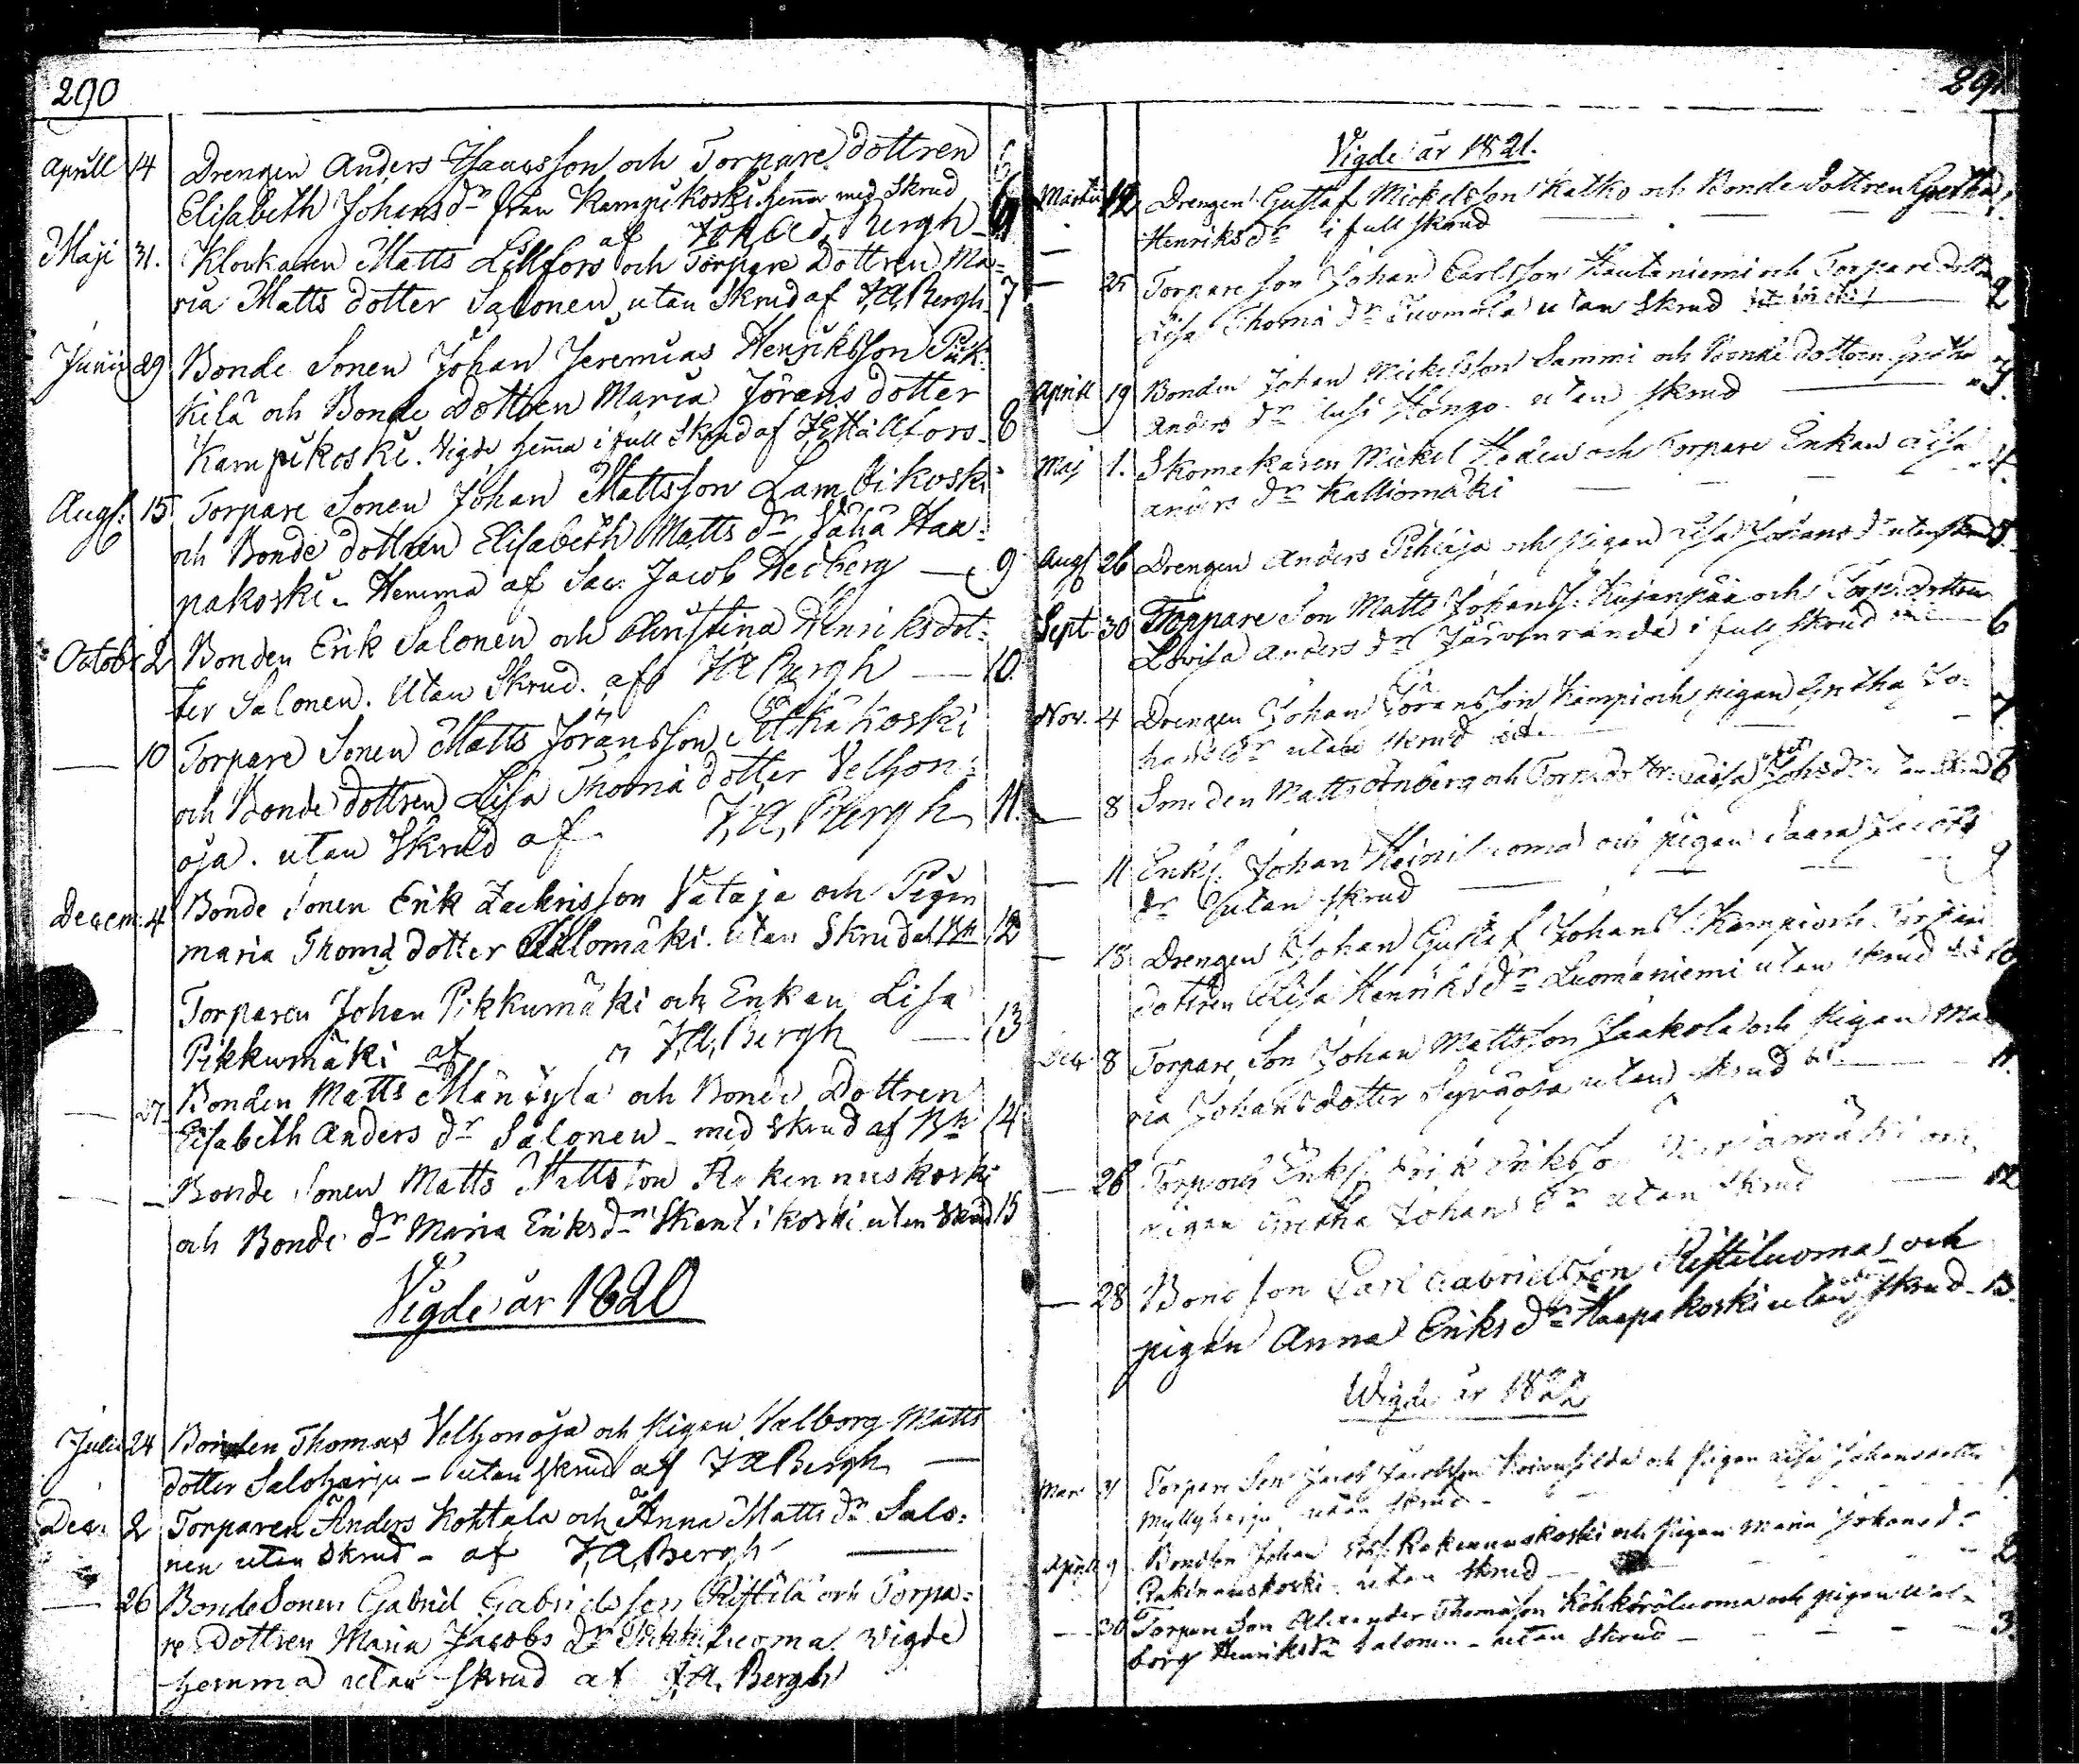 290
Aprill 14 Drengen Anders Isaacsson och Torpare dottren
Elisabeth Johans dr från Kampikoski hemma med Skrud
af Joh. Ad. Bergh 6
Maji 31. Klockaren Matts Lillfors och Torpare Dottren Ma=
ria Matts dotter Salonen utan Skrud af J.A. Bergh 7
Junii 29 Bonde Sonen Johan Jeremias Henriksson
kilä och Bonde Dottren Maria Jörans dotter
Kampikoski. Vigde hema i full Skrud af Hällfors 8
Augs: 15 Torpare Sonen Johan Mattsson Lambikoski
och Bonde dottren Elisabeth Matts dr Vähä Haa=
pakoski. Hemma af Sac: Jacob Hedberg 9
Octob: 2 Bonden Erik Salonen och Christina Henriksdot=
ter Salonen. Utan Skrud. af J A Bergh 10.
— 10 Torpare Sonen Matts Jöransson Pitkäkoski
och Bonde dottren Lisa Thoma dotter Veljon=
oja. utan Skrud af J. A. Bergh 11.
Decem: 4 Bonde Sonen Erik Zachrisson Vataja och Pigan
maria Thoma dotter utan Skrud af Bh 12
— Torparen Johan Pikkumäki och Enkan Lisa
Pikkumäki af J. A. Bergh 13
— 27. Bonden Matts Mäntylä och Bonde Dottren
Elisabeth Anders dr Salonen - med Skrud af Bh 14
— — Bonde Sonen Matts Mattsson Rakennuskoski
och Bonde dr Maria Eriks dr Skantikoski utan Skrud 15
Vigde år 1820
Julii 24 Bonden Thomas Veljonoja och Pigan Valborg Matts
dotter Saloharju - utan Skrud af J A Bergh —
Dec: 2 Torparen Anders Kohtala och Anna Matts dr Salo=
nen utan Skrud - af J. A. Bergh —
— 26 Bonde Sonen Gabriel Gabrielsson Ristilä och Torpa=
re Dottren Maria Jacobs dr vigde
hemma utan Skrud af J. A. Bergh
291
Vigde år 1821.
Martii 12 Drengen Gustaf Mickelsson Katko och Bonde dottren Gretha
Henriks dr i full skrud 1
— 25 Torpare Son Johan Carlsson Hautaniemi och Torpare dottr
Lisa Thoma dr Tuomala utan Skrud 2
Aprill 19 Bonden Johan Mickelsson Sammi och Bonde dottren Gretha
Anders dr utan Skrud 3.
Maj 1. Skomakaren Mickel Hedén och Torpare Enkan Lisa
Anders dr Kalliomäki 4.
Augs 26 Drengen Anders Pihlaja och Pigan Lisa Johans dr utan Skrud 5.
Sept. 30 Torpare Son Matts Johans: Kujanpää och Torp. Dottren
Lovisa Anders dr Järvenranda i full skrud 6
Nov. 4 Drengen Johan Göransson Kampi och pigan Gretha Jo=
hans dr utan Skrud 7
— 8 Smeden Matts och Torp. dottr. Caisa Johs dr utan Skrud 8
— 11 Enkl. Johan Heiniluoma och pigan Saara Jacobs
dr utan skrud 9
— 18 Drengen Johan Gustaf Johans Kampi och Torpare
dottren Lisa Henriks dr Luomaniemi utan skrud 10
Dec 8 Torpare Son Johan Mattsson Jaakola och Pigan Ma=
ria Johansdotter Syväoja utan Skrud 11.
— 26 Torp och Enkl. Erik Eriksson och
pigan Gretha Johans dr utan Skrud 12
— 28 Bond son Carl Gabrielsson Ristiluoma och
pigan Anna Eriks dr Haapakoski utan skrud. 13.
Wigde år 1822
Mars 31 Torpare Son Jacob Jacobsson och Pigan Lisa Johansdotter
Myllyharju utan Skrud - 1
Aprill 9 Bondson Johan Rakennuskoski och Pigan Maria Johansd:
Rakennuskoski - utan Skrud 2.
— 30 Torpare Son Alexander Thomasson Köhköräluoma och pigan Wal=
borg Henriksdr Salonen - utan Skrud 3.